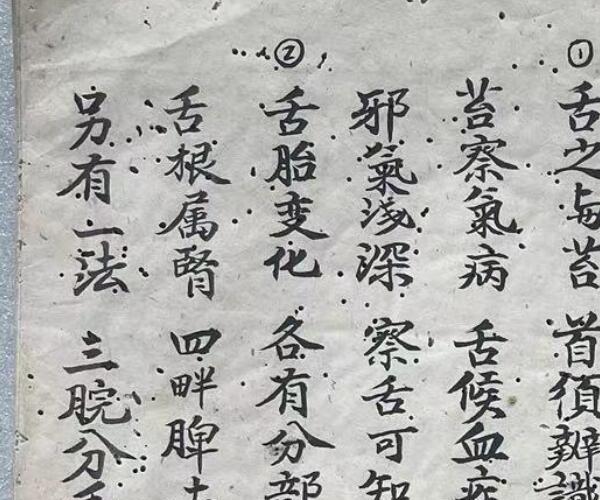 ①
舌之与苔 首須辨識
苔察氣病 舌候血疾
邪氣浅深 察舌可知
②
舌胎变化 各有分部
舌根属腎 四畔脾土
另有一法 三脘分